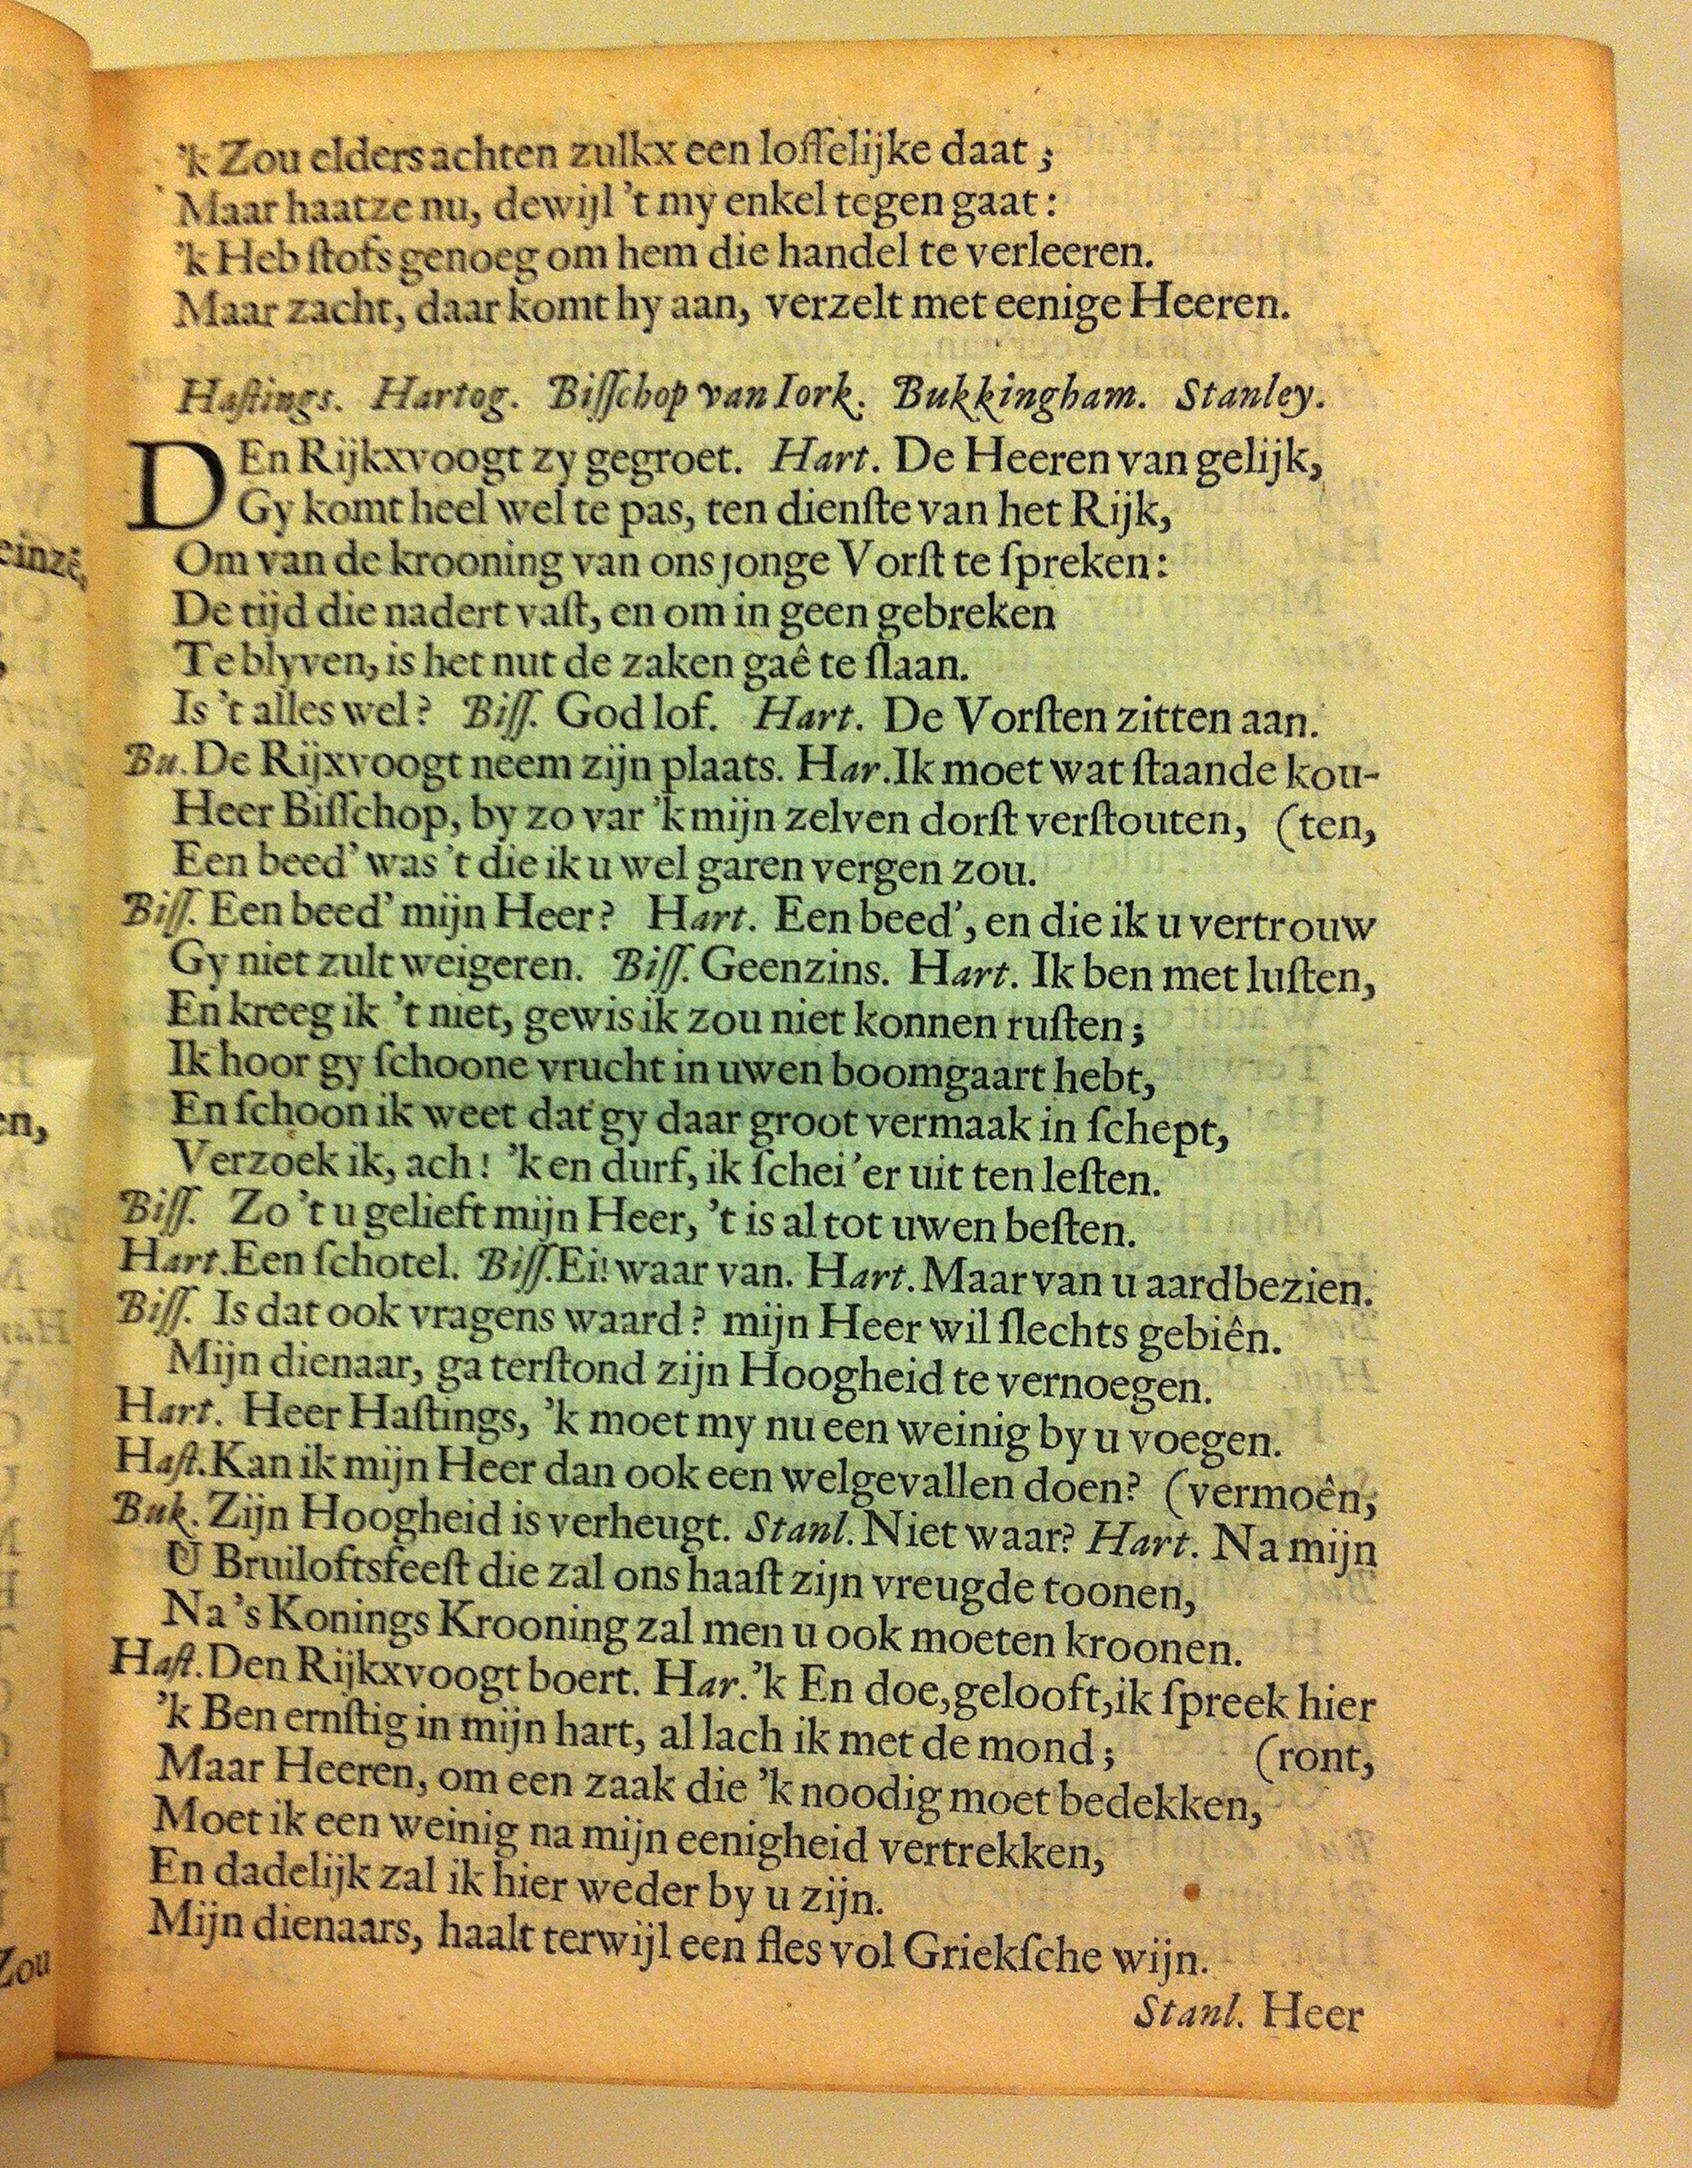 'k Zou elders achten zulkx een loffelijke daat ;
Maar haatze nu, dewijl 't my enkel tegen gaat :
'k Heb ſtofs genoeg om hem die handel te verleeren.
Maar zacht, daar komt hy aan, verzelt met eenige Heeren.
Haſtings. Hartog. Biſſchop van Iork. Bukkingham. Stanley.
DEn Rijkxvoogt zy gegroet. Hart. De Heeren van gelijk,
Gy komt heel wel te pas, ten dienſte van het Rijk,
Om van de krooning van ons jonge Vorſt te ſpreken :
De tijd die nadert vaſt, en om in geen gebreken
Te blyven, is het nut de zaken gaê te ſlaan.
Is 't alles wel ? Biſſ. God lof. Hart. De Vorſten zitten aan.
Bu. De Rijxvoogt neem zijn plaats. Har. Ik moet wat ſtaande kou-
Heer Biſſchop, by zo var 'k mijn zelven dorſt verſtouten, (ten,
Een beed' was 't die ik u wel garen vergen zou.
Biſſ. Een beed' mijn Heer ? Hart. Een beed', en die ik u vertrouw
Gy niet zult weigeren. Biſſ. Geenzins. Hart. Ik ben met luſten,
En kreeg ik 't niet, gewis ik zou niet konnen ruſten ;
Ik hoor gy ſchoone vrucht in uwen boomgaart hebt,
En ſchoon ik weet dat gy daar groot vermaak in ſchept,
Verzoek ik, ach ! 'k en durf, ik ſchei 'er uit ten leſten.
Biſſ. Zo 't u gelieft mijn Heer, 't is al tot uwen beſten.
Hart. Een ſchotel. Biſſ. Ei! waar van. Hart. Maar van u aardbezien.
Biſſ. Is dat ook vragens waard ? mijn Heer wil ſlechts gebiên.
Mijn dienaar, ga terſtond zijn Hoogheid te vernoegen.
Hart. Heer Haſtings, 'k moet my nu een weinig by u voegen.
Haſt. Kan ik mijn Heer dan ook een welgevallen doen? (vermoên,
Buk. Zijn Hoogheid is verheugt. Stanl. Niet waar? Hart. Na mijn
U Bruiloftsfeeſt die zal ons haaſt zijn vreugde toonen,
Na 's Konings Krooning zal men u ook moeten kroonen.
Haſt. Den Rijkxvoogt boert. Har. 'k En doe, gelooft, ik ſpreek hier
'k Ben ernſtig in mijn hart, al lach ik met de mond ; (ront,
Maar Heeren, om een zaak die 'k noodig moet bedekken,
Moet ik een weinig na mijn eenigheid vertrekken,
En dadelijk zal ik hier weder by u zijn.
Mijn dienaars, haalt terwijl een fles vol Griekſche wijn.
Stanl. Heer